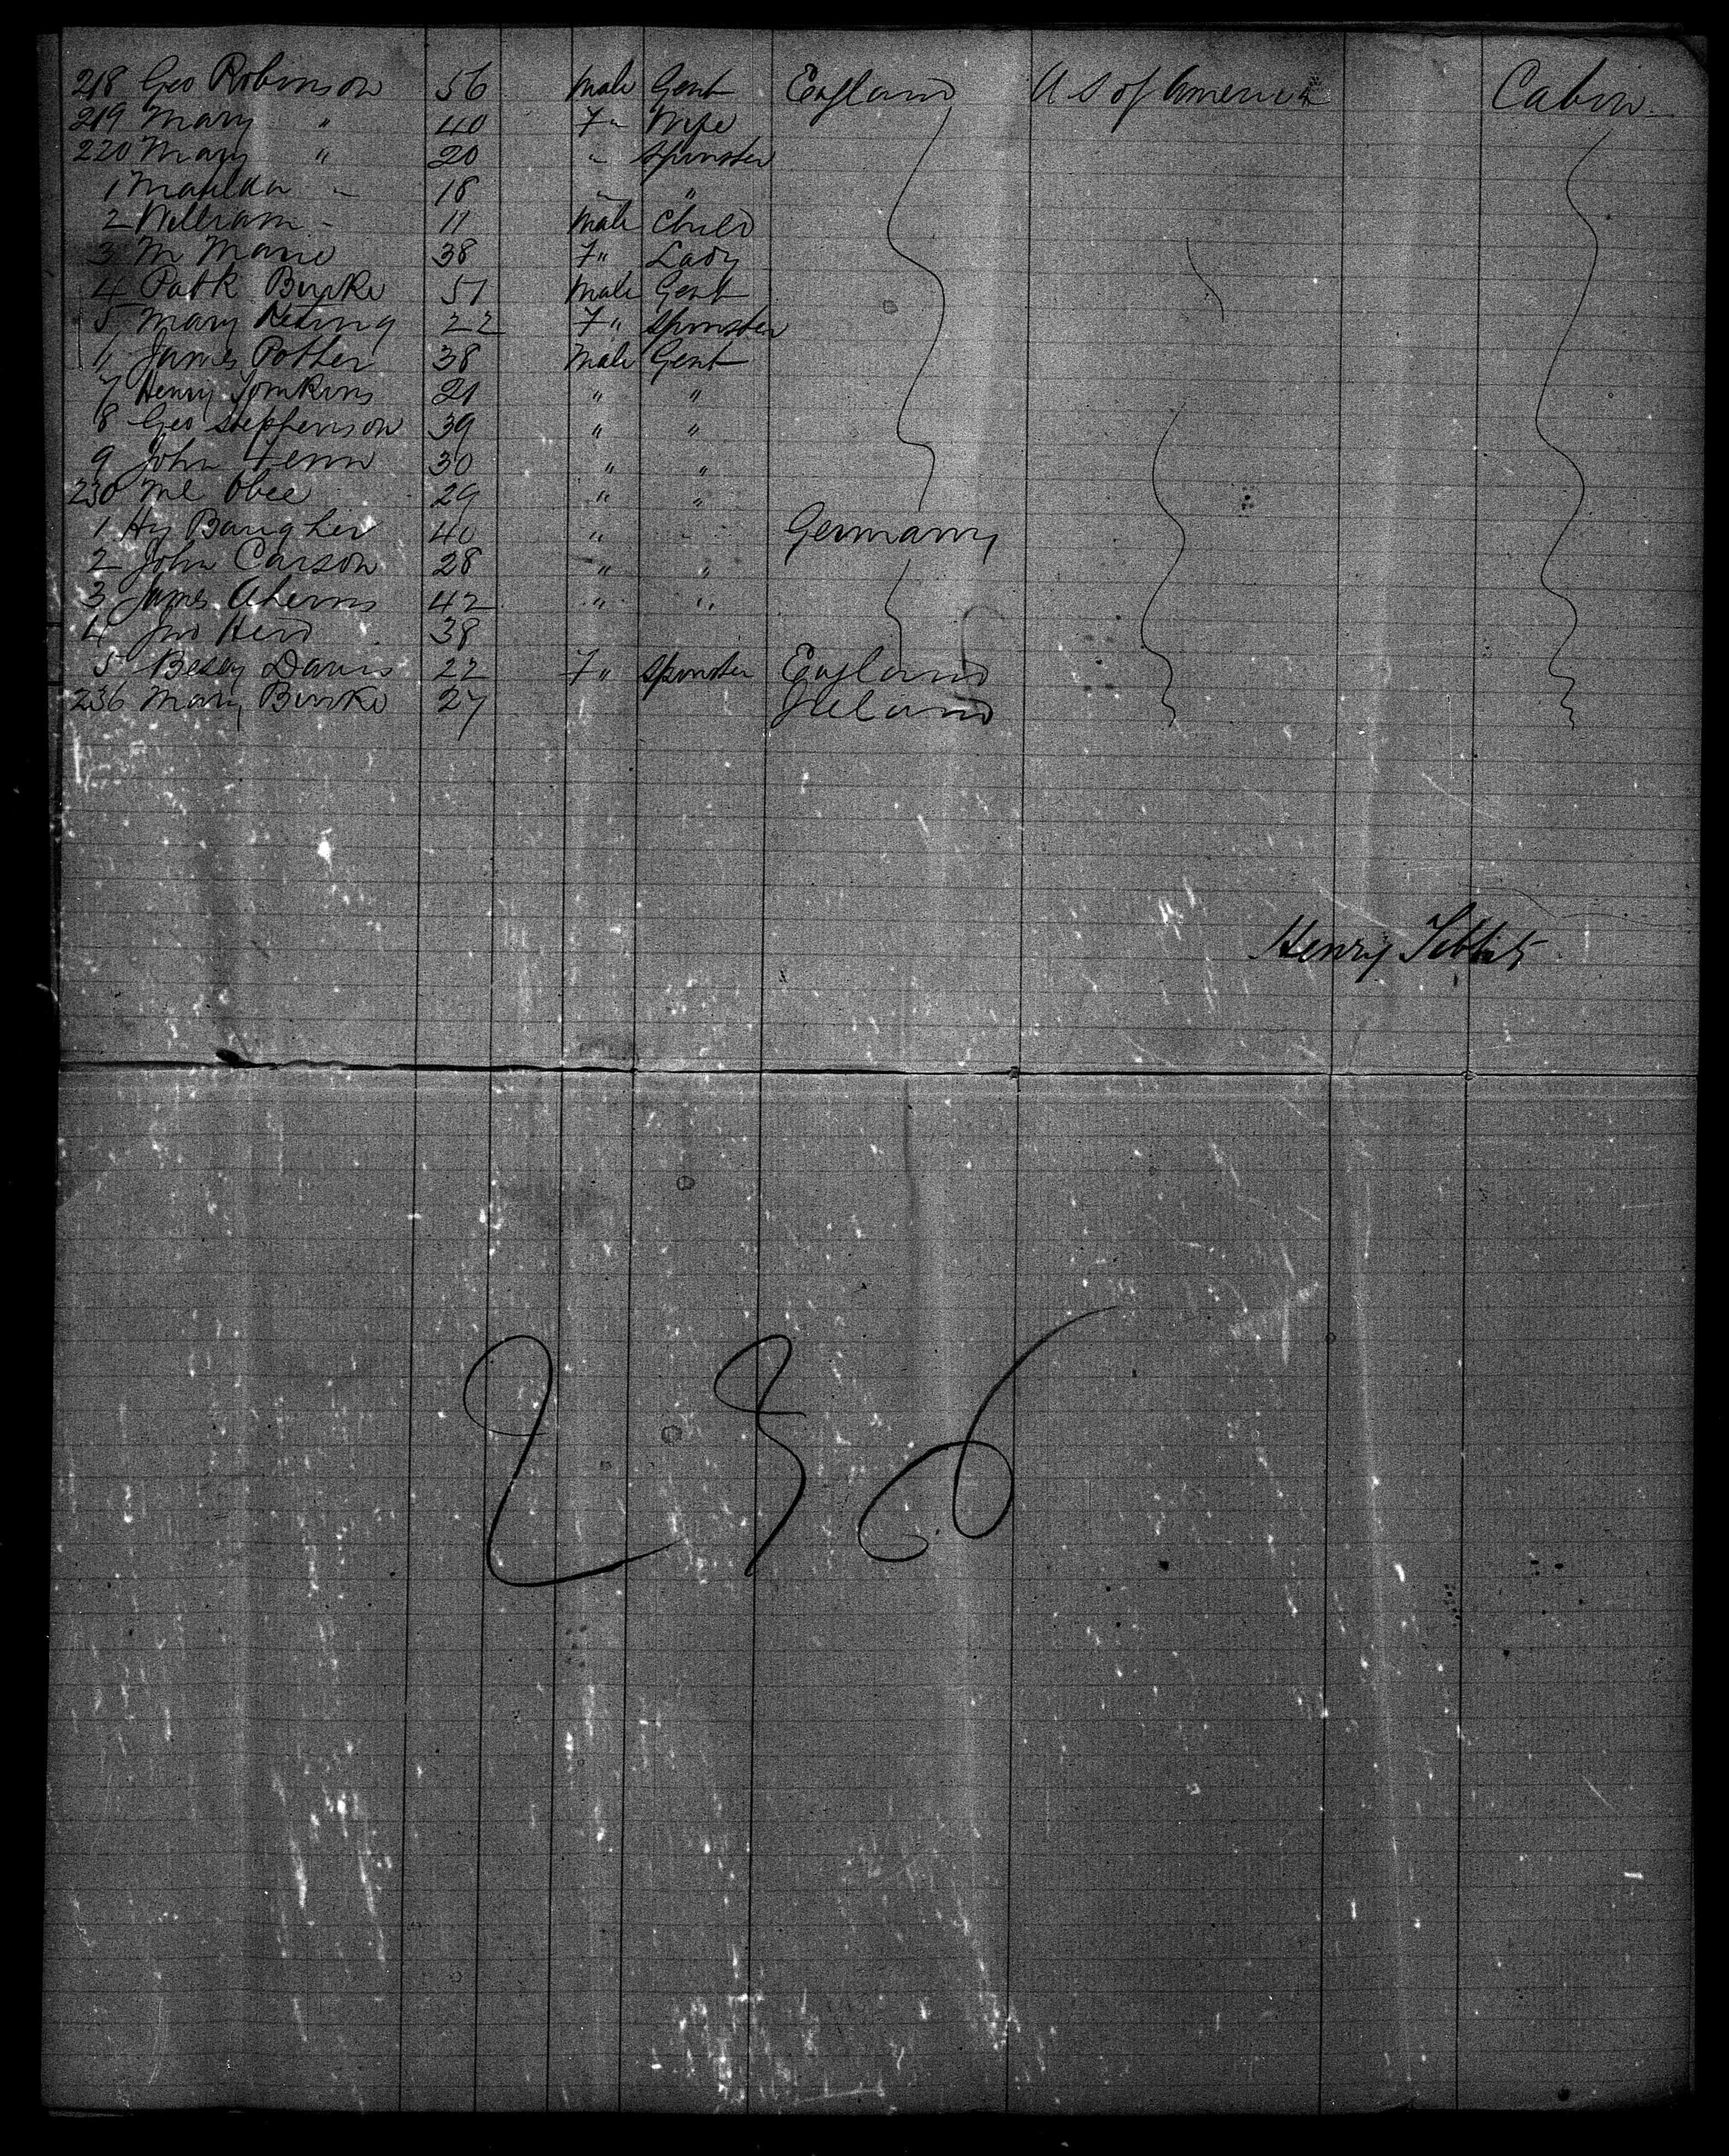 218 Geo Robinson 56 Male Gent England U S of America Cabin
219 Mary " 40 F " Wife
220 Mary " 20 " Spinster
1 Matilda " 18 " "
2 William " 11 Male Child
3 M Marie 38 F " Lady
4 Patk Burke 51 Male Gent
5 Mary 22 F " Spinster
James Potter 38 Male Gent
7 Henry Tomkins 21 " "
8 Geo Stephenson 39 " "
9 John Fenn 30 " "
230 Obee 29 " "
1 Hy Baugher 40 " " Germany
2 John Carson 28 " "
3 James Aherns 42 " "
4 Jno Herd 38
5 Bessy Davis 22 F " Spinster England
236 Mary Burke 27 Ireland
Henry Tebbits
236